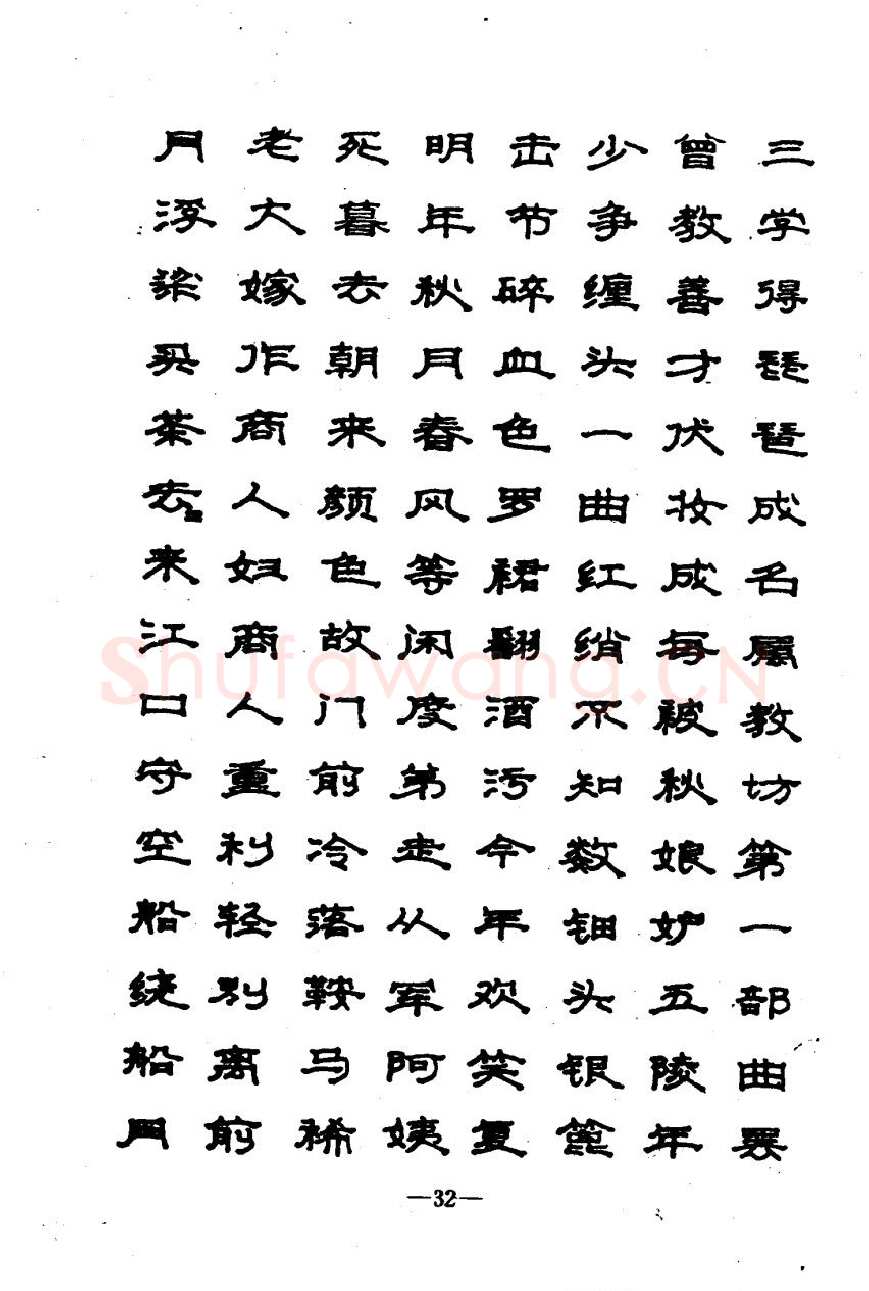 三学得琵琶成名属教坊第一部曲罢
曾教善才伏妆成每被秋娘妒五陵年
少争缠头一曲红绡不知数钿头银篦
击节碎血色罗裙翻酒污今年欢笑复
明年秋月春风等闲度弟走从军阿姨
死暮去朝来颜色故门前冷落鞍马稀
老大嫁作商人妇商人重利轻别离前
月浮梁买茶去来江口守空船绕船月
—32—
Shufawang.CN